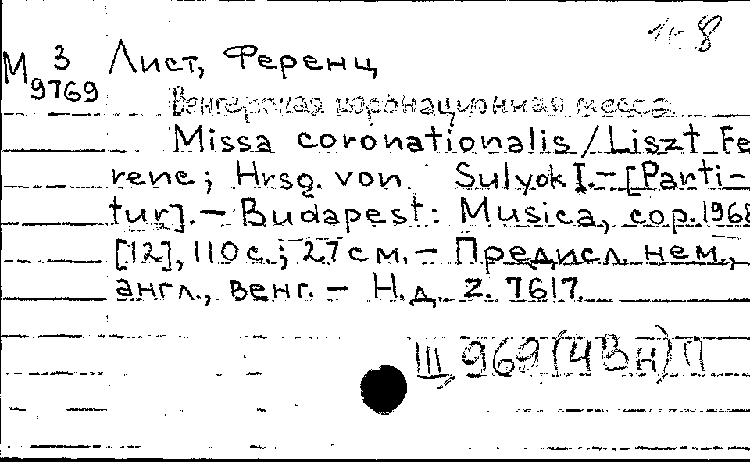 8
М 3 Лист, Ференц
9769
Венгерская коронационная месса
Missa coronationalis / Liszt Fe
renc; Hrsg. von Sulyok I. – [Parti-
tur]. – Budapest: Musica, cop. 1968
[12], 110 с.; 27 см. – Предисл. нем.,
англ., венг. – Н.д. Z. 7617.
III 969 (4Вн) П